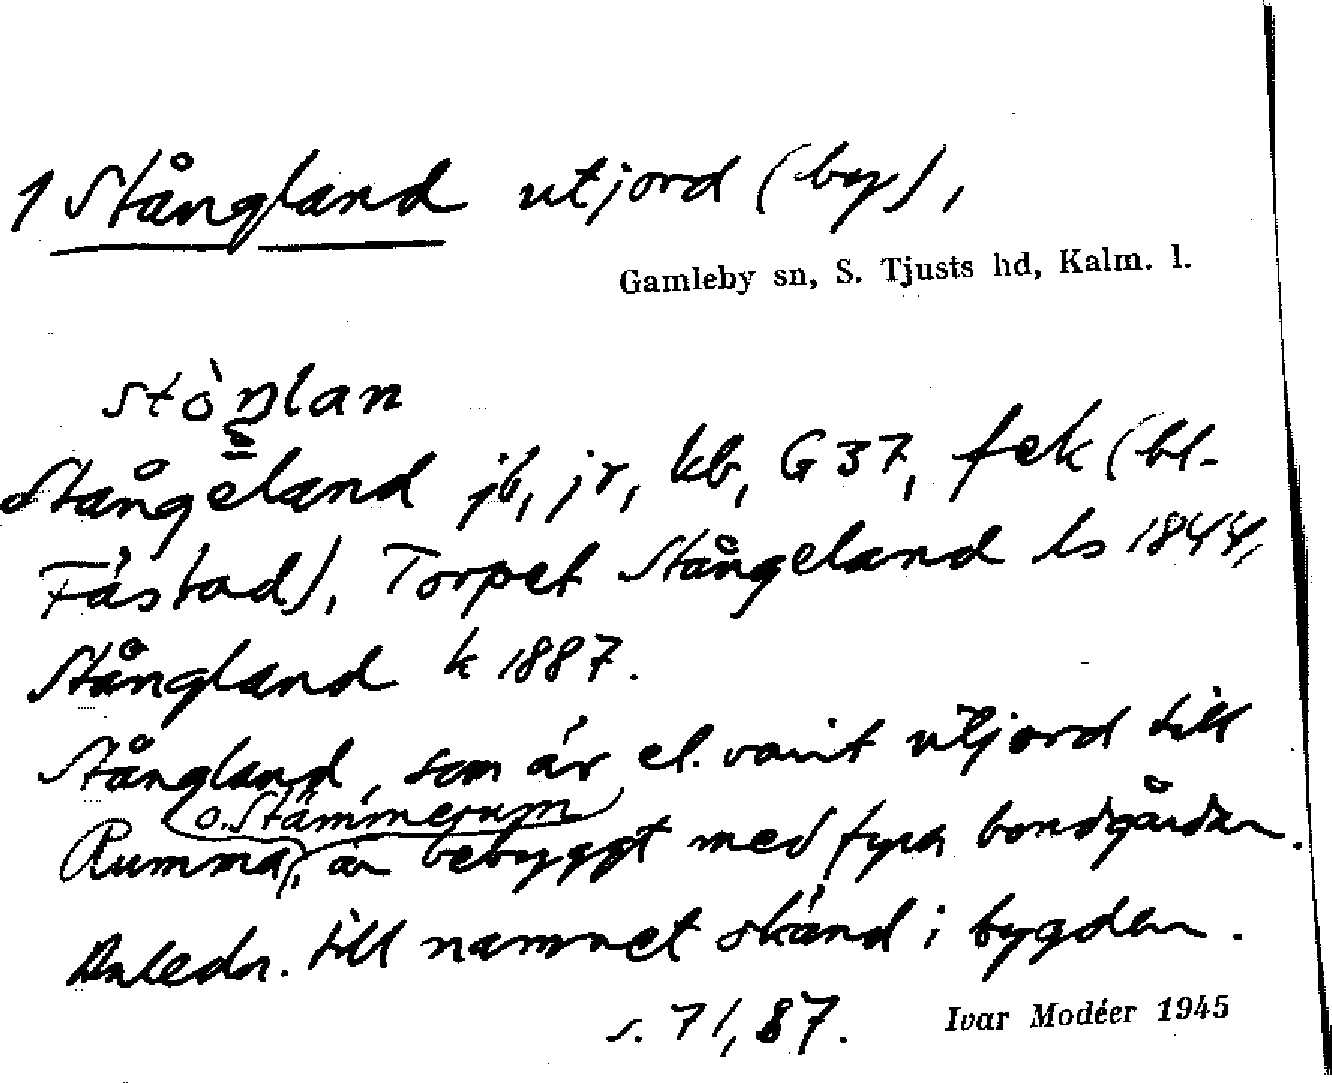 1 Stångland utjord (by),
Gamleby sn, S. Tjusts hd, Kalm. l.
stòŋlan
Stångeland jb, jr, kb, G 37, fek (bl.
Fästad), Torpet Stångeland ls 1844,
Stångland k 1887.
Stångland, som är el. varit utjord till
o. Stämmerum
Rumma, är bebyggt med fyra bondgårdar.
Anledn. till namnet okänd i bygden.
s. 71, 87. Ivar Modéer 1945